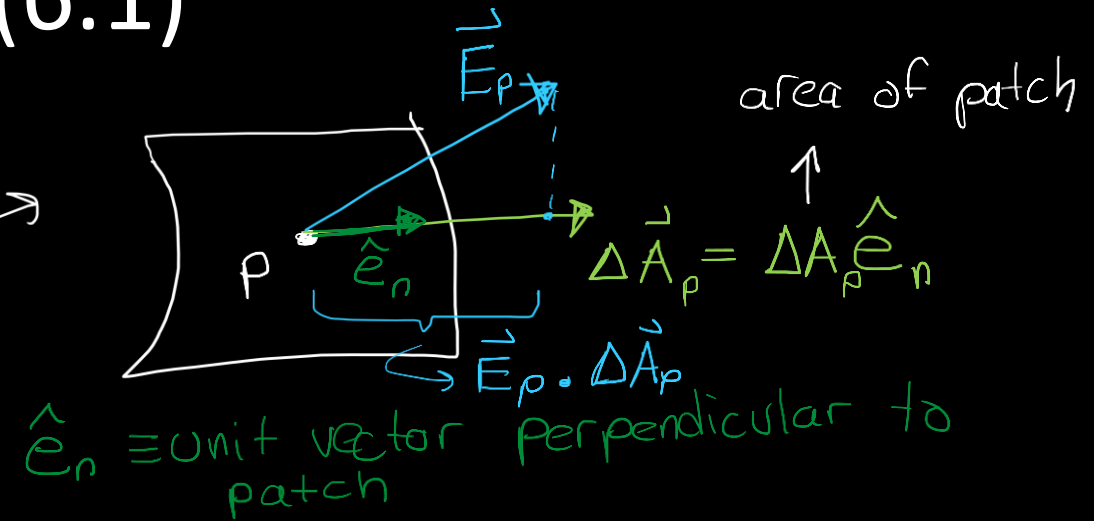 (6.1)
E⃗ₚ
area of patch
P
ê_n
ΔA⃗ₚ = ΔAₚ ê_n
E⃗ₚ · ΔA⃗ₚ
ê_n ≡ unit vector perpendicular to
patch